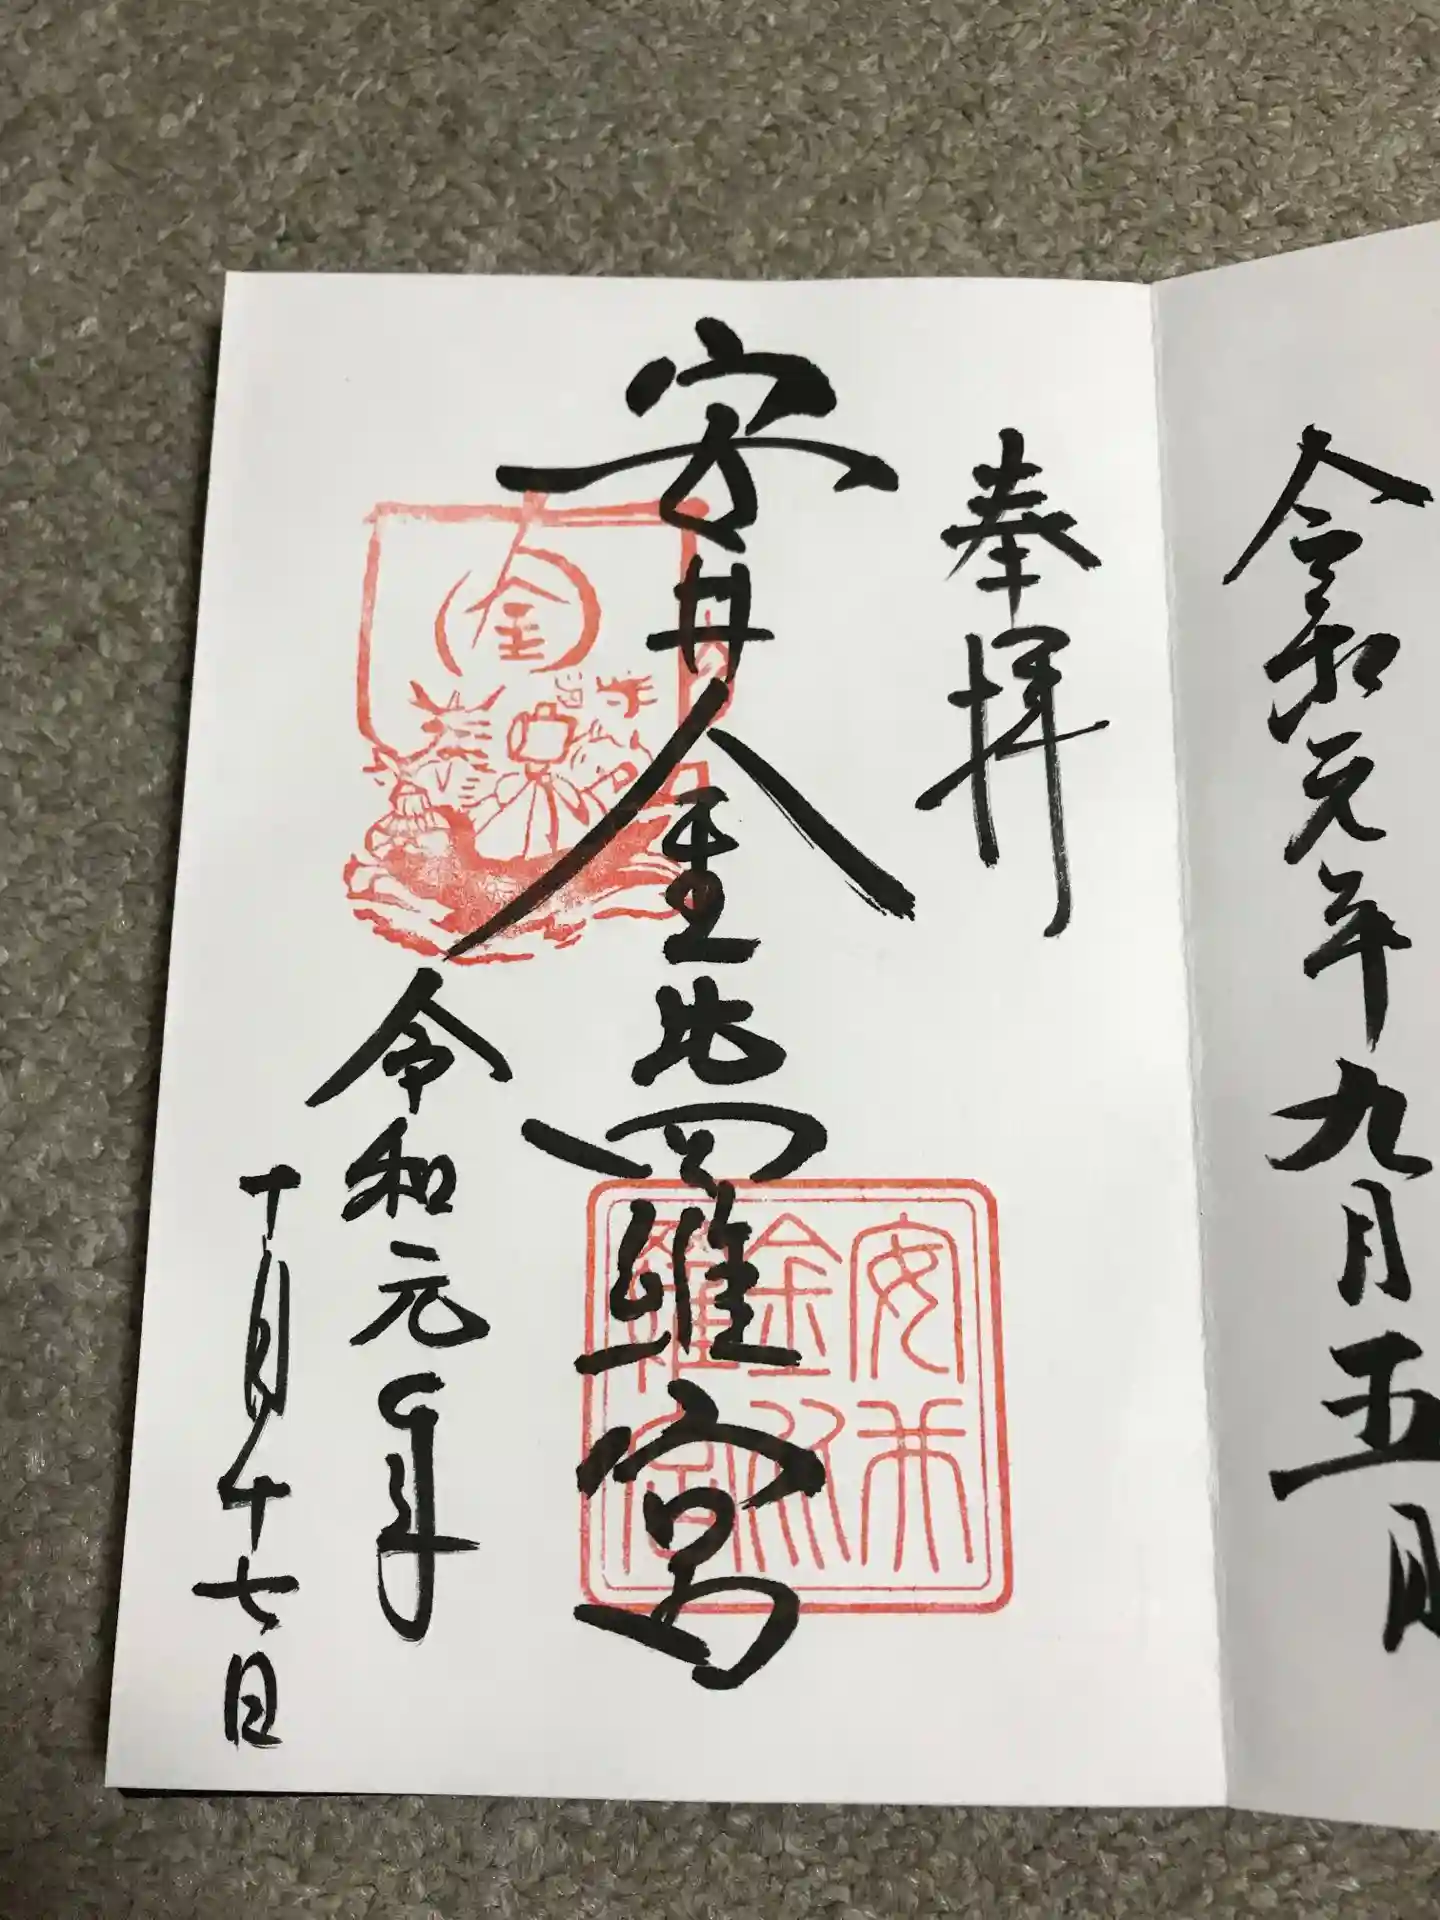 令和元年九月五日
奉拝
安井金比羅宮
令和元年
十月十七日
金
安井
金比
羅宮